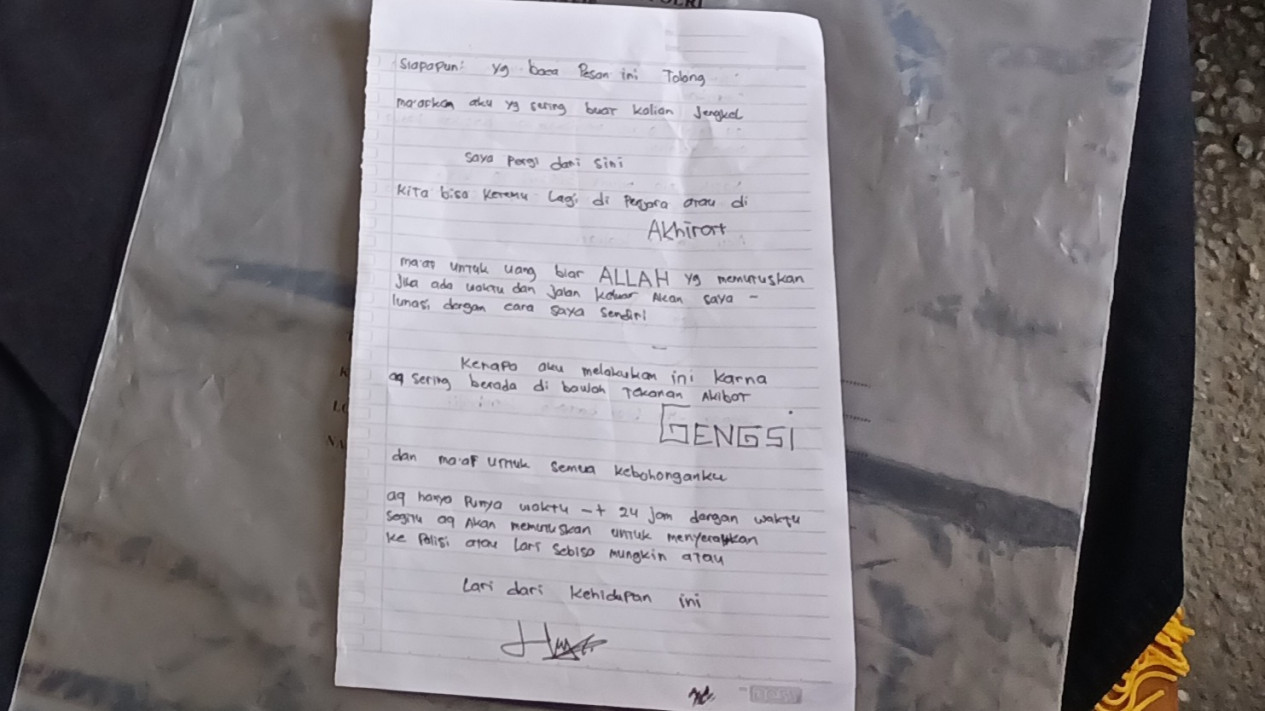 POLRI
Siapapun: yg baca Pesan ini Tolong
ma'afkan aku yg sering buat kalian Jengkel
saya Pergi dari sini
Kita bisa Ketemu Lagi di Penjara atau di
Akhirat
ma'af untuk uang biar ALLAH yg memutuskan
Jika ada waktu dan Jalan keluar Akan saya -
lunasi dengan cara saya sendiri
Kenapa aku melakukan ini karna
aq sering berada di bawah Tekanan Akibat
GENGSi
dan ma'af untuk semua kebohonganku
aq hanya Punya waktu -+ 24 jam dengan waktu
Segitu aq Akan memutuskan untuk menyerahkan
ke Polisi atau Lari sebisa mungkin atau
Lari dari kehidupan ini